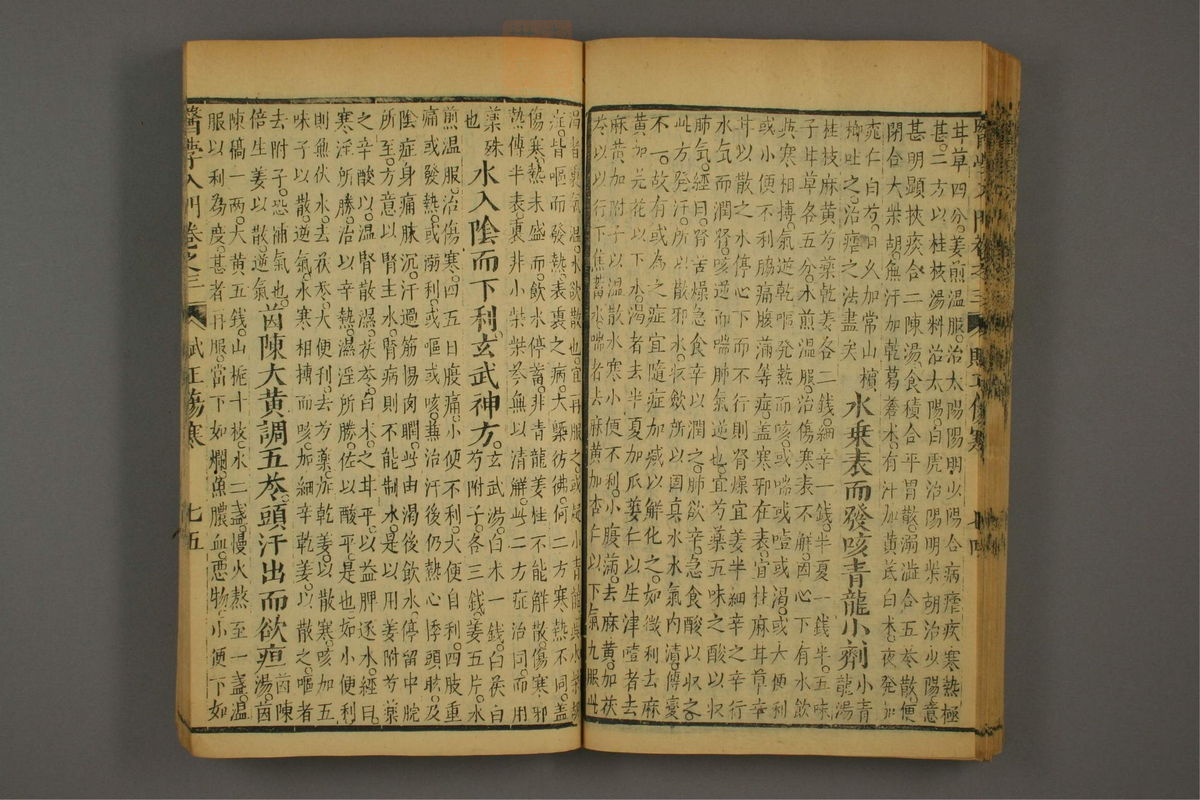 甘草四分。姜煎溫服。治太陽陽明少陽合病瘧疾寒熱極
甚。二方以桂枝湯料治太陽。白虎治陽明柴胡治少陽意
甚明顯。挾痰合二陳湯。食積合平胃散。溺澁合五苓散。便
閉合大柴胡。無汗加乾葛蒼朮。有汗加黃芪白朮。夜發加
桃仁白芍。日久加常山檳
梹吐之。治瘧之法盡矣。水乘表而發咳青龍小劑小青龍湯
桂枝麻黃芍藥乾姜各二錢。細辛一錢。半夏一錢半。五味
子甘草各五分。水煎溫服。治傷寒表不解。因心下有水飲
與寒相摶。氣逆乾嘔發熱而咳。或喘或噎或渴。或大便利
或小便不利脇痛腹滿等症。蓋寒邪在表。宜桂麻甘草辛
甘以散之水停心下而不行則腎燥宜姜半細辛之辛行
水氣而潤腎。咳逆而喘肺氣逆也。宜芍藥五味之酸以收
肺氣。經曰。腎苦燥急食辛以潤之。肺欲辛。急食酸以收之。
此方發汗。所以散邪水。收飲所以固真水。水氣內漬。傳變
不一。故有或為之症宜隨症加减以解化之。如微利去麻
黃加芫花以下水。渴者去半夏加瓜蔞仁以生津噎者去
麻黃加附子以溫散水寒小便不利。小腹滿。去麻黃。加茯
苓以行下焦蓄水喘者去麻黃加杏仁以下氣。凡服此
症。皆嘔而發熱。表裏之病。大槩彷彿。何二方寒熱不同。蓋
傷寒。熱未盛而飲水停蓄。非青龍姜桂不能解散。傷寒邪
熱傳半表裏。非小柴芩無以清解。此二方症治同。而用
藥殊也水入陰而下利玄武神方。玄武湯。白朮一錢。白茯白
芍附子。各三錢。姜五片。水
煎溫服。治傷寒四五日。腹痛。小便不利。大便自利。四肢重
痛。或發熱。或渤利。或嘔或咳。兼治汗後仍熱心悸頭眩及
陰症身痛脉沉。汗過筋惕肉瞤。此由渴後飲水停留中脘
所至。方意以腎主水。腎病則不能制水。是以用姜附芍藥
之辛酸以溫腎散濕。茯苓白朮之甘平以益脾逐水。經曰。
寒淫所勝。治以辛熱濕淫所勝。佐以酸平。是也。如小便利
則無伏水。去茯苓。大便利。去芍藥。加乾姜。以散寒咳加五
味子以散逆氣水寒相搏而咳。加細辛乾姜。以散之。嘔者
去附子。恐補氣也。
倍生姜以散逆氣茵陳大黃調五苓。頭汗出而欲疸茵陳湯。茵
陳稿一兩。大黃五錢。山梔十枚。水二盞。慢火熬至一盞。溫
服。以利為度。甚者再服。當下如爛魚膿血惡物。小便下如
醫學入門卷之三
賦正傷寒
七五